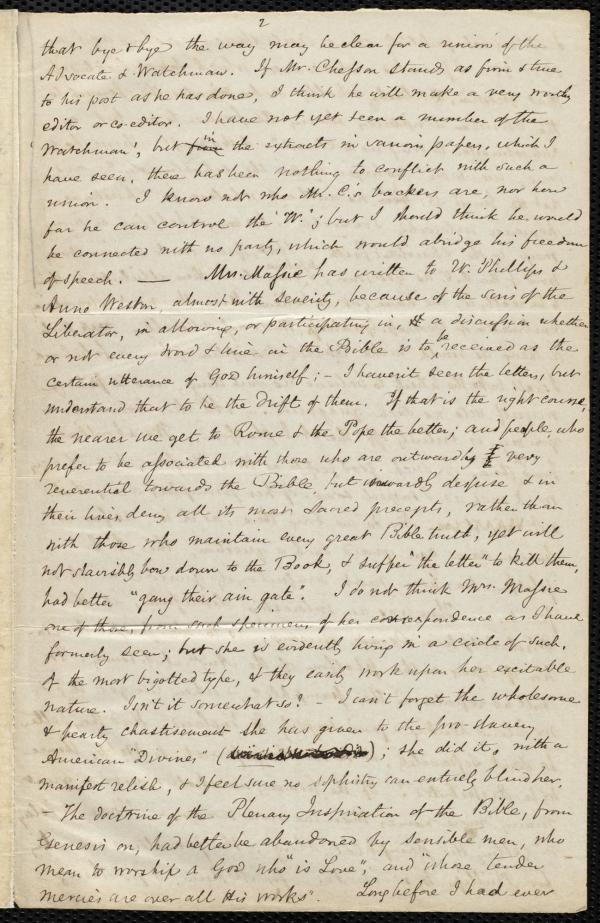 2
that bye & bye the way may be clear for a union of the
Advocate & Watchman. If Mr. Chesson stands as firm & true
to his post as he has done, I think he will make a very worthy
editor or co-editor. I have not yet seen a number of the
'Watchman', but from in the extracts in various papers, which I
have seen, there has been nothing to conflict with such a
union. I know not who Mr. C.'s backers are, nor how
far he can control the 'W.'; but I should think he would
be connected with no party, which would abridge his freedom
of speech. — Mrs. Massie has written to W. Phillips &
Anne Weston, almost with severity, because of the sins of the
Liberator, in allowing, or participating in, a discussion whether
or not every word & line in the Bible is to be received as the
certain utterance of God himself; – I haven't seen the letters, but
understand that to be the drift of them. If that is the right course,
the nearer we get to Rome & the Pope the better; and people who
prefer to be associated with those who are outwardly very
reverential towards the Bible, but inwardly despise & in
their lives deny all its most sacred precepts, rather than
with those who maintain every great Bible truth, yet will
not slavishly bow down to the Book, & suffer "the letter" to kill them,
had better "gang their ain gate". I do not think Mrs. Massie
one of those, from such specimens of her correspondence as I have
formerly seen; but she is evidently living in a circle of such,
of the most bigotted type, & they easily work upon her excitable
nature. Isn't it somewhat so? – I can't forget the wholesome
& hearty chastisement she has given to the pro-slavery
American "Divines" ( ); she did it, with a
manifest relish, & I feel sure no sophistry can entirely blind her.
– The doctrine of the Plenary Inspiration of the Bible, from
Genesis on, had better be abandoned by sensible men, who
mean to worship a God who "is Love", and "whose tender
mercies are over all His works". Long before I had ever